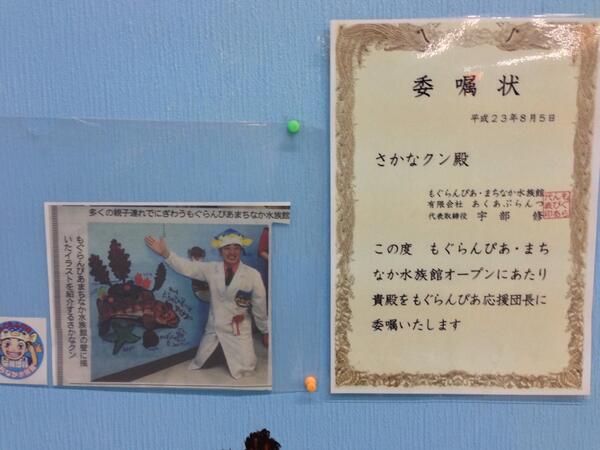 多くの親子連れでにぎわうもぐらんぴあまちなか水族館
もぐらんぴあまちなか水族館の壁に描
いたイラストを紹介するさかなクン
委嘱状
平成23年8月5日
さかなクン殿
もぐらんぴあ・まちなか水族館
有限会社 あくあぷらんつ
代表取締役 宇部 修
この度 もぐらんぴあ・まち
なか水族館オープンにあたり
貴殿をもぐらんぴあ応援団長に
委嘱いたします